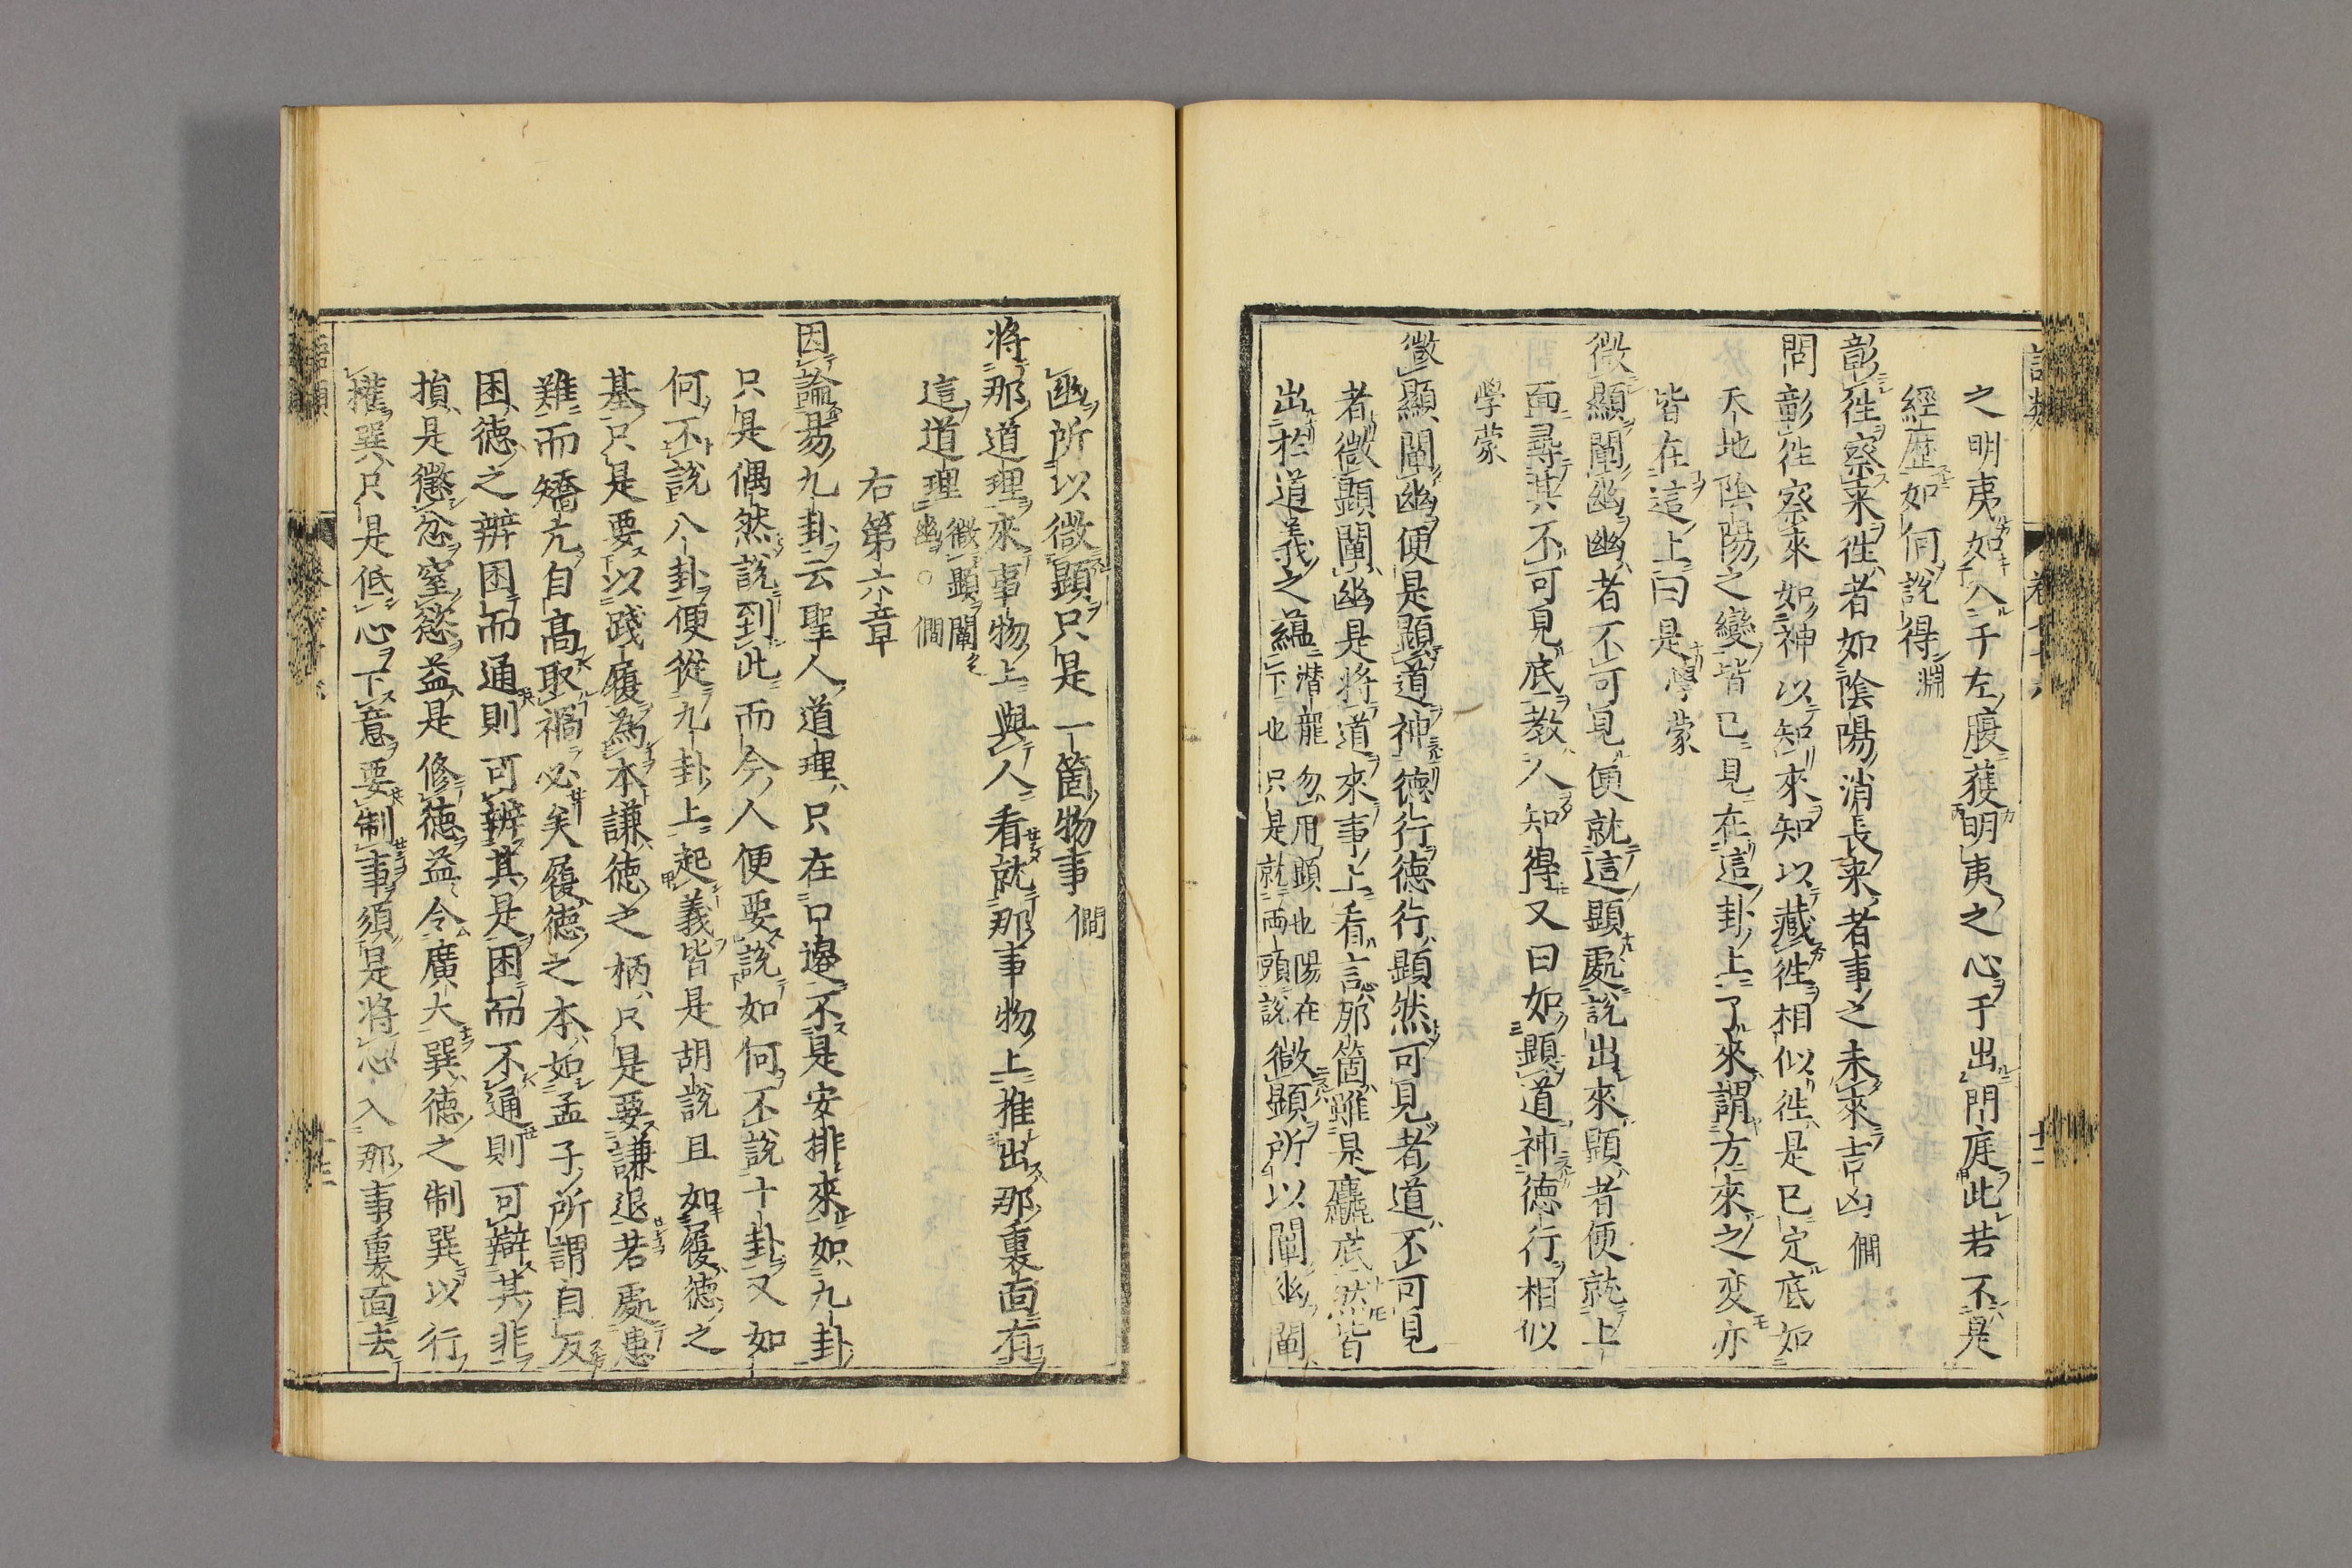 之明夷如入于左腹獲明夷之心于出門庭此若不是
經歴如何說得淵
彰徃察来徃者如陰陽消長来者事之未來吉凶僩
問彰徃察來如神以知來知以藏徃相似徃是已定底如
天地陰陽之變皆已見在這卦上了來謂方來之変亦
皆在這上曰是學蒙
微顯闡幽幽者不可見便就這顯處說出來顯者便就上
面尋其不可見底教人知得又曰如顯道神德行相似
學蒙
微顯闡幽便是顯道神德行德行顯然可見者道不可見
者微顯闡幽是將道來事上看言那箇雖是麤底然皆
出於道義之蘊潜龍勿用顯也陽在
下也只是就両頭說微顯所以闡幽闡
幽所以微顯只是一箇物事僩
將那道理來事物上與人看就那事物上推出那裏面有
這道理微顯闡
幽○僩
右第六章
因論易九卦云聖人道理只在口邊不是安排來如九卦
只是偶然說到此而今人便要說如何不說十卦又如
何不說八卦便從九卦上起義皆是胡說且如履德之
基只是要以踐履為本謙德之柄只是要謙退若處患
難而矯亢自高取禍必矣履德之本如孟子所謂自反
困德之辨困而通則可辨其是困而不通則可辯其非
損是懲忿窒慾益是修德益令廣大巽德之制巽以行
權巽只是低心下意要制事須是將心入那事裏面去